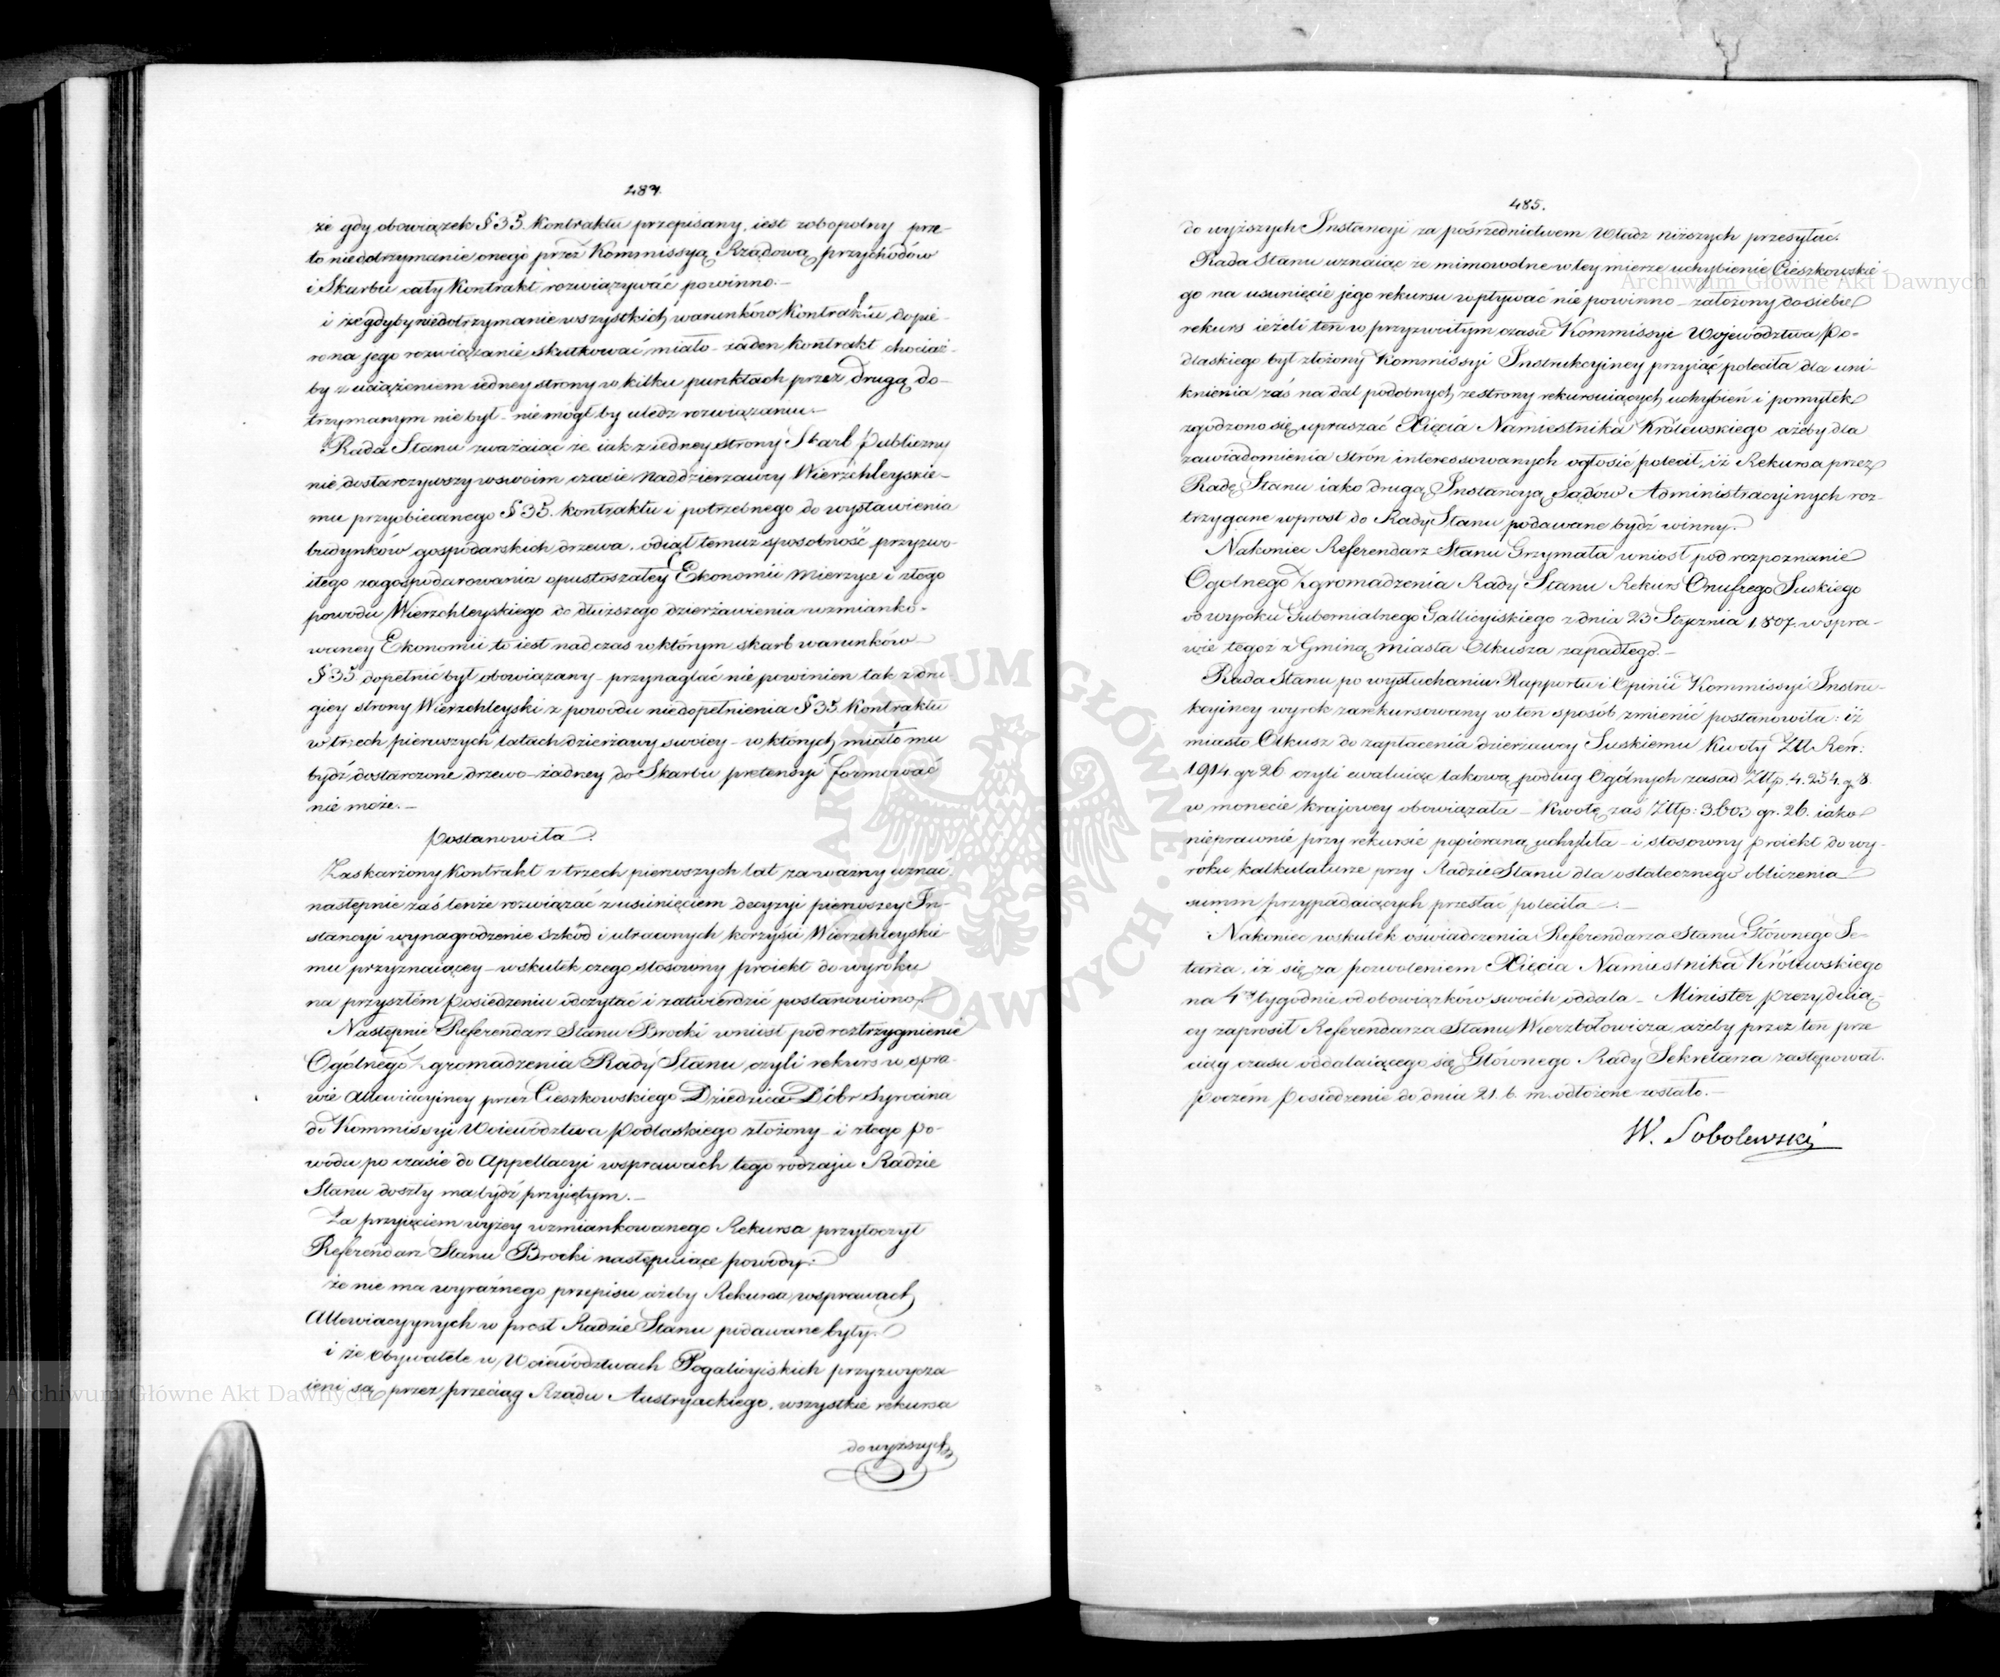 484.
że gdy obowiązek § 35. Kontraktu przepisany, iest zobopolny prze-
to niedotrzymanie onego przez Kommissyą Rządową przychodów
i Skarbu cały Kontrakt rozwiązywać powinno.—
i że gdyby niedotrzymanie wszystkich warunków Kontraktu, dopie-
ro na jego rozwiązanie skutkować miało – żaden kontrakt chociaż-
by z uciążeniem iedney strony w kilku punktach przez drugą do-
trzymanym nie był – nie mógł by uledz rozwiązaniu.—
Rada Stanu zważaiąc że iak z iedney strony Skarb publiczny
nie dostarczywszy wswoim czasie Naddzierzawcy Wierzchleyskie-
mu przyobiecanego § 35. kontraktu i potrzebnego do wystawienia
budynków gospodarskich drzewa, odiął temuż sposobność przyzwo-
itego zagospodarowania opustoszałey Ekonomii Mierzyce i z tego
powodu Wierzchleyskiego do dłuższego dzierżawienia wzmianko-
waney Ekonomii to iest nad czas w którym skarb warunków
§ 35 dopełnić był obowiązany – przynaglać nie powinien tak z dru-
giey strony Wierzchleyski z powodu niedopełnienia § 35 Kontraktu
w trzech pierwszych latach dzierżawy swoiey – w których miało mu
bydź dostarczone drzewo – żadney do Skarbu pretensyi formować
nie może.—
postanowiła.
Zaskarżony Kontrakt z trzech pierwszych lat za ważny uznać,
następnie zaś tenże rozwiązać z usunięciem decyzyi pierwszey In-
stancyi wynagrodzenie szkód i utraconych korzyści Wierzchleyskie-
mu przyznaiącey – wskutek czego stosowny proiekt do wyroku
na przyszłém posiedzeniu odczytać i zatwierdzić postanowiono.
Następnie Referendarz Stanu Brocki wniosł pod roztrzygnienie
Ogólnego Zgromadzenia Rady Stanu, czyli rekurs w spra-
wie allewiacyiney przez Cieszkowskiego Dziedzica Dóbr Syrocina
do Kommissyi Woiewództwa Podlaskiego złożony – i z tego po-
wodu po czasie do Appellacyi wsprawach tego rodzaju Radzie
Stanu doszły ma bydź przyiętym.—
Za przyięciem wyżey wzmiankowanego Rekursa przytoczył
Referendarz Stanu Brocki następuiące powody:
że nie ma wyraźnego przepisu ażeby Rekursa wsprawach
Allewiacyynych w prost Radzie Stanu podawane były.
i że obywatele w Woiewództwach Pogalicyiskich przyzwycza
ieni są przez przeciąg Rządu Austryackiego, wszystkie rekursa
do wyższych
485.
do wyższych Instancyi za pośrednictwem Władz niższych przesyłać.
Rada Stanu uznaiąc że mimowolne w tey mierze uchybienie Cieszkowskie-
go na usunięcie jego rekursu wpływać nie powinno – założony do siebie
rekurs ieżeli ten w przyzwoitym czasie Kommissyi Województwa Po-
dlaskiego był złożony Kommissyi Instrukcyiney przyiąć poleciła dla uni-
knienia zaś na dal podobnych ze strony rekursuiących uchybień i pomyłek
zgodzono się upraszać Xięcia Namiestnika Królewskiego ażeby dla
zawiadomienia strón interessowanych ogłosić polecił, iż Rekursa przez
Radę Stanu iako drugą Instancyą Sądów Administracyinych roz-
trzygane wprost do Rady Stanu podawane bydź winny.
Nakoniec Referendarz Stanu Grzymała wniosł pod rozpoznanie
Ogolnego Zgromadzenia Rady Stanu Rekurs Onufrego Suskiego
od wyroku Gubernialnego Gallicyiskiego z dnia 23 Stycznia 1807. w spra-
wie tegoż z Gminą Miasta Olkusza zapadłego.—
Rada Stanu po wysłuchaniu Rapportu i Opinii Kommissyi Instru-
kcyiney wyrok zarekursowany w ten sposób zmienić postanowiła: iż
miasto Olkusz do zapłacenia dzierżawcy Suskiemu Kwoty Złł Reń:
1914. gr 26 czyli ewaluiąc takową podług Ogólnych zasad Złłp. 4.254. g 8.
w monecie krajowey obowiązała – Kwotę zaś Złłp: 3.603 gr. 26. iako
nieprawnie przy rekursie popieraną uchyliła – i stosowny proiekt do wy-
roku kalkulaturze przy Radzie Stanu dla ostatecznego obliczenia
summ przypadaiących przesłać poleciła.—
Nakoniec wskutek oświadczenia Referendarza Stanu Głównego Se-
tarza, iż się za pozwoleniem Xięcia Namiestnika Królewskiego
na 4ry tygodnie od obowiązków swoich oddala – Minister prezyduią-
cy zaprosił Referendarza Stanu Wierzbołowicza, ażeby przez ten prze
ciąg czasu oddalaiącego się Głównego Rady Sekretarza zastępował.
poczém posiedzenie do dnia 21. b. m. odłożone zostało.—
W. Sobolewski
ARCHIWUM GŁÓWNE AKT DAWNYCH
Archiwum Główne Akt Dawnych
Archiwum Główne Akt Dawnych